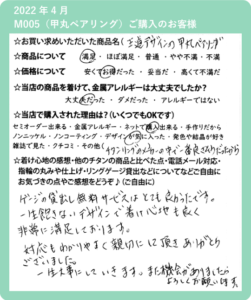 2022年4月
M005（甲丸ペアリング）ご購入のお客様
☆お買い求めいただいた商品名（王道デザインの甲丸ペアリング
☆商品について 満足・ほぼ満足・普通・やや不満・不満
☆価格について 安くてお得だった・妥当だ・高くて不満だ
☆当店の商品を着けて、金属アレルギーは大丈夫でしたか?
大丈夫だった・ダメだった・アレルギーではない
☆当店で購入された理由は?（いくつでもOKです）
セミオーダー出来る・金属アレルギー・ネットで購入出来る・手作りだから
ノンニッケル・ノンコーティング・デザインが気に入った・発色や結晶が好き
雑誌で見た・クチコミ・その他（
☆着け心地の感想・他のチタンの商品と比べた点・電話メール対応・
指輪の丸みや仕上げ・リングゲージ貸出などについてなどご自由に
お気づきの点やご感想をどうぞ♪(ご自由に)
ゲージの貸出し無料サービスはとても良かったです。
一生飽きないデザインで着け心地も良く
非常に満足しております。
対応もわかりやすく親切にして頂きありがとう
ございました。
一生大事にしていきます。また機会がありましたら
よろしくお願い致します